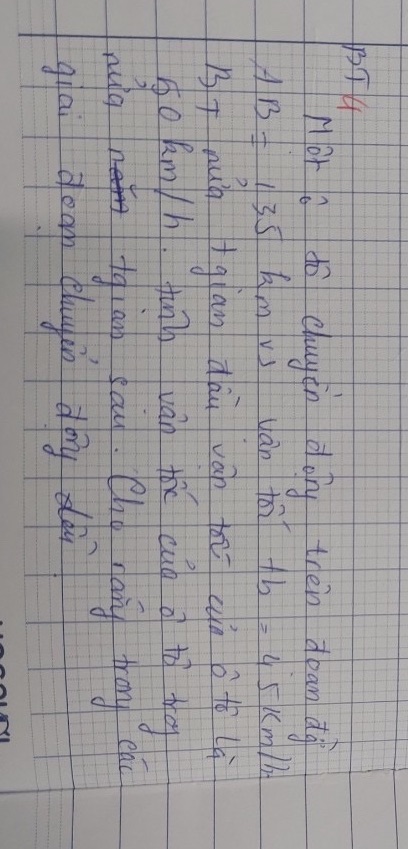 BT 4
Một ô tô chuyển động trên đoạn đg
AB = 135 km vs vận tốc tb = 45 Km/h
BT nửa tgian đầu vận tốc của ô tô là
50 km/h. tính vận tốc của ô tô trg
nửa tgian sau. Cho rằng trong các
giai đoạn chuyển động đều.